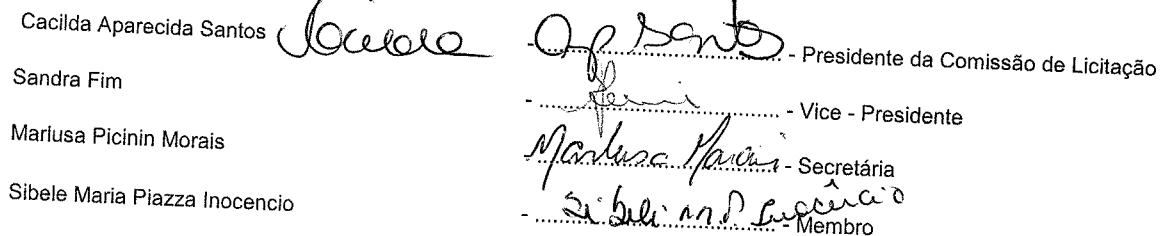 Cacilda Aparecida Santos Cacilda - Ap Santos - Presidente da Comissão de Licitação
Sandra Fim - ........................................ - Vice - Presidente
Marlusa Picinin Morais Marlusa Morais - Secretária
Sibele Maria Piazza Inocencio - Sibeli M.P. Inocêncio - Membro